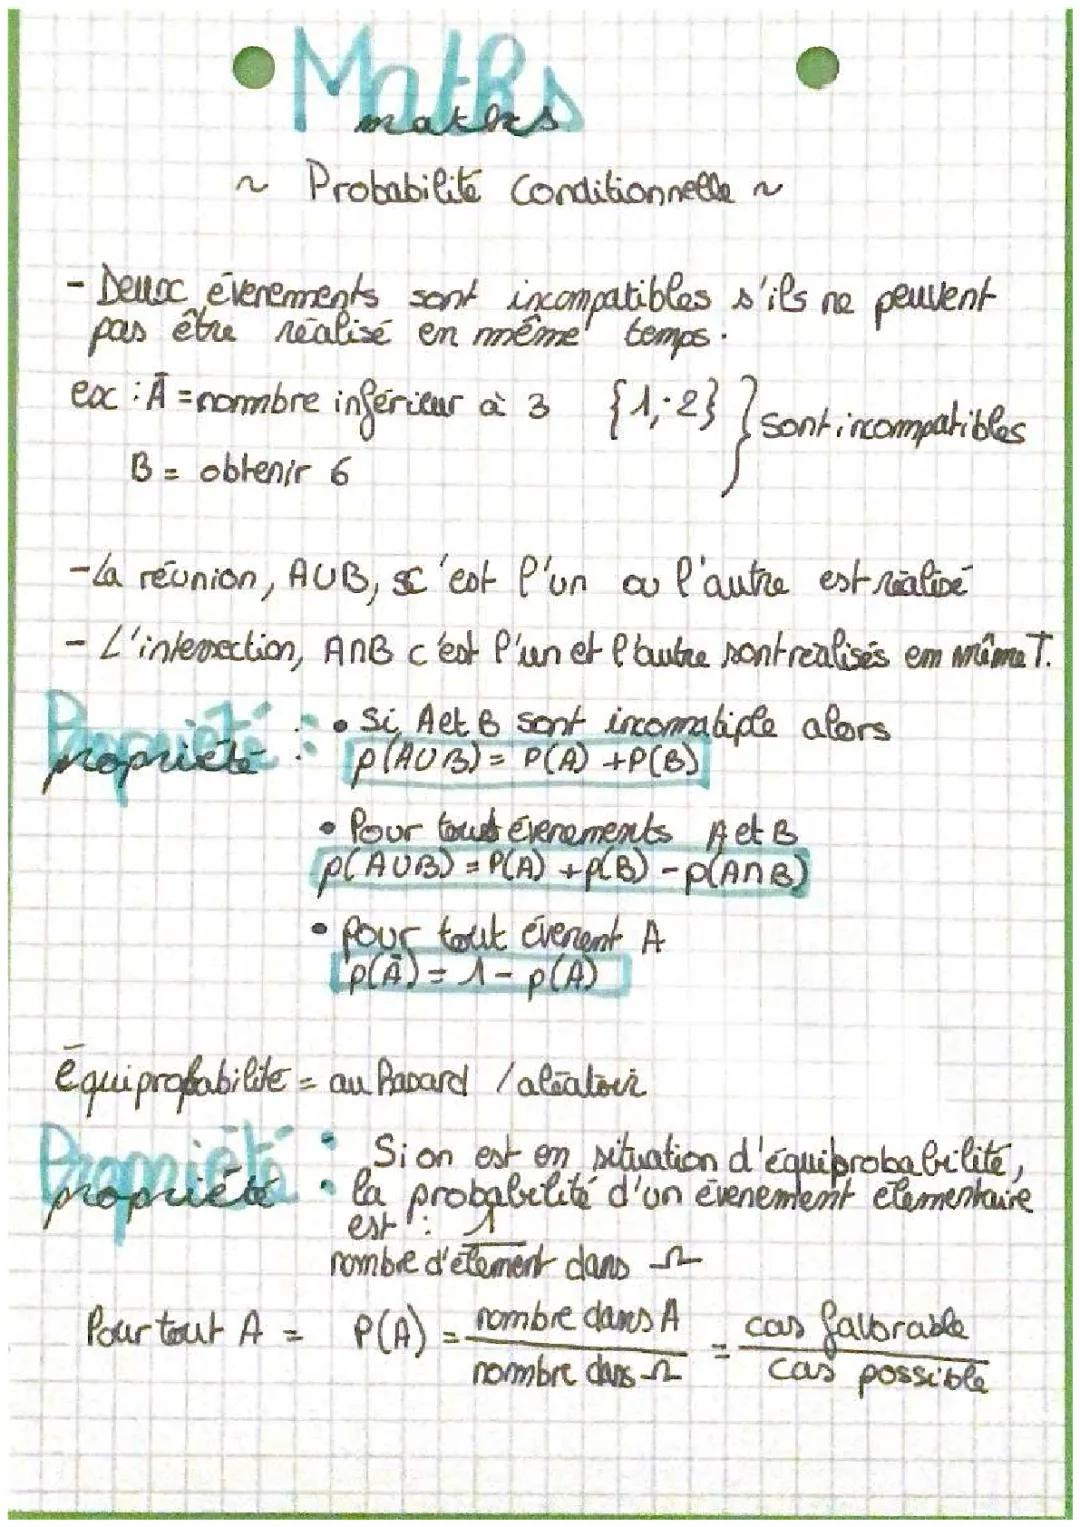 Maths
maths
~ Probabilité Conditionnelle ~
- Deux évenements sont incompatibles s'ils ne peuvent
pas être réalisé en même temps.
ex : Ā = nombre inférieur à 3 {1; 2} } sont incompatibles
B = obtenir 6
- La réunion, A∪B, c'est l'un ou l'autre est réalisé
- L'intersection, A∩B c'est l'un et l'autre sont réalisés em même T.
Propriété :
propriété
• Si, A et B sont incomatiple alors
p(A∪B) = P(A) + P(B)
• Pour tout évenements A et B
p(A∪B) = P(A) + p(B) - p(A∩B)
• pour tout événent A
p(Ā) = 1 - p(A)
équiprobabilité = au hasard / aléatoir
Propriété :
propriété
Si on est en situation d'équiprobabilité,
la probabilité d'un évenement élementaire
est : 1
nombre d'élement dans Ω
Pour tout A = P(A) = nombre dans A / nombre dans Ω = cas favorable / cas possible